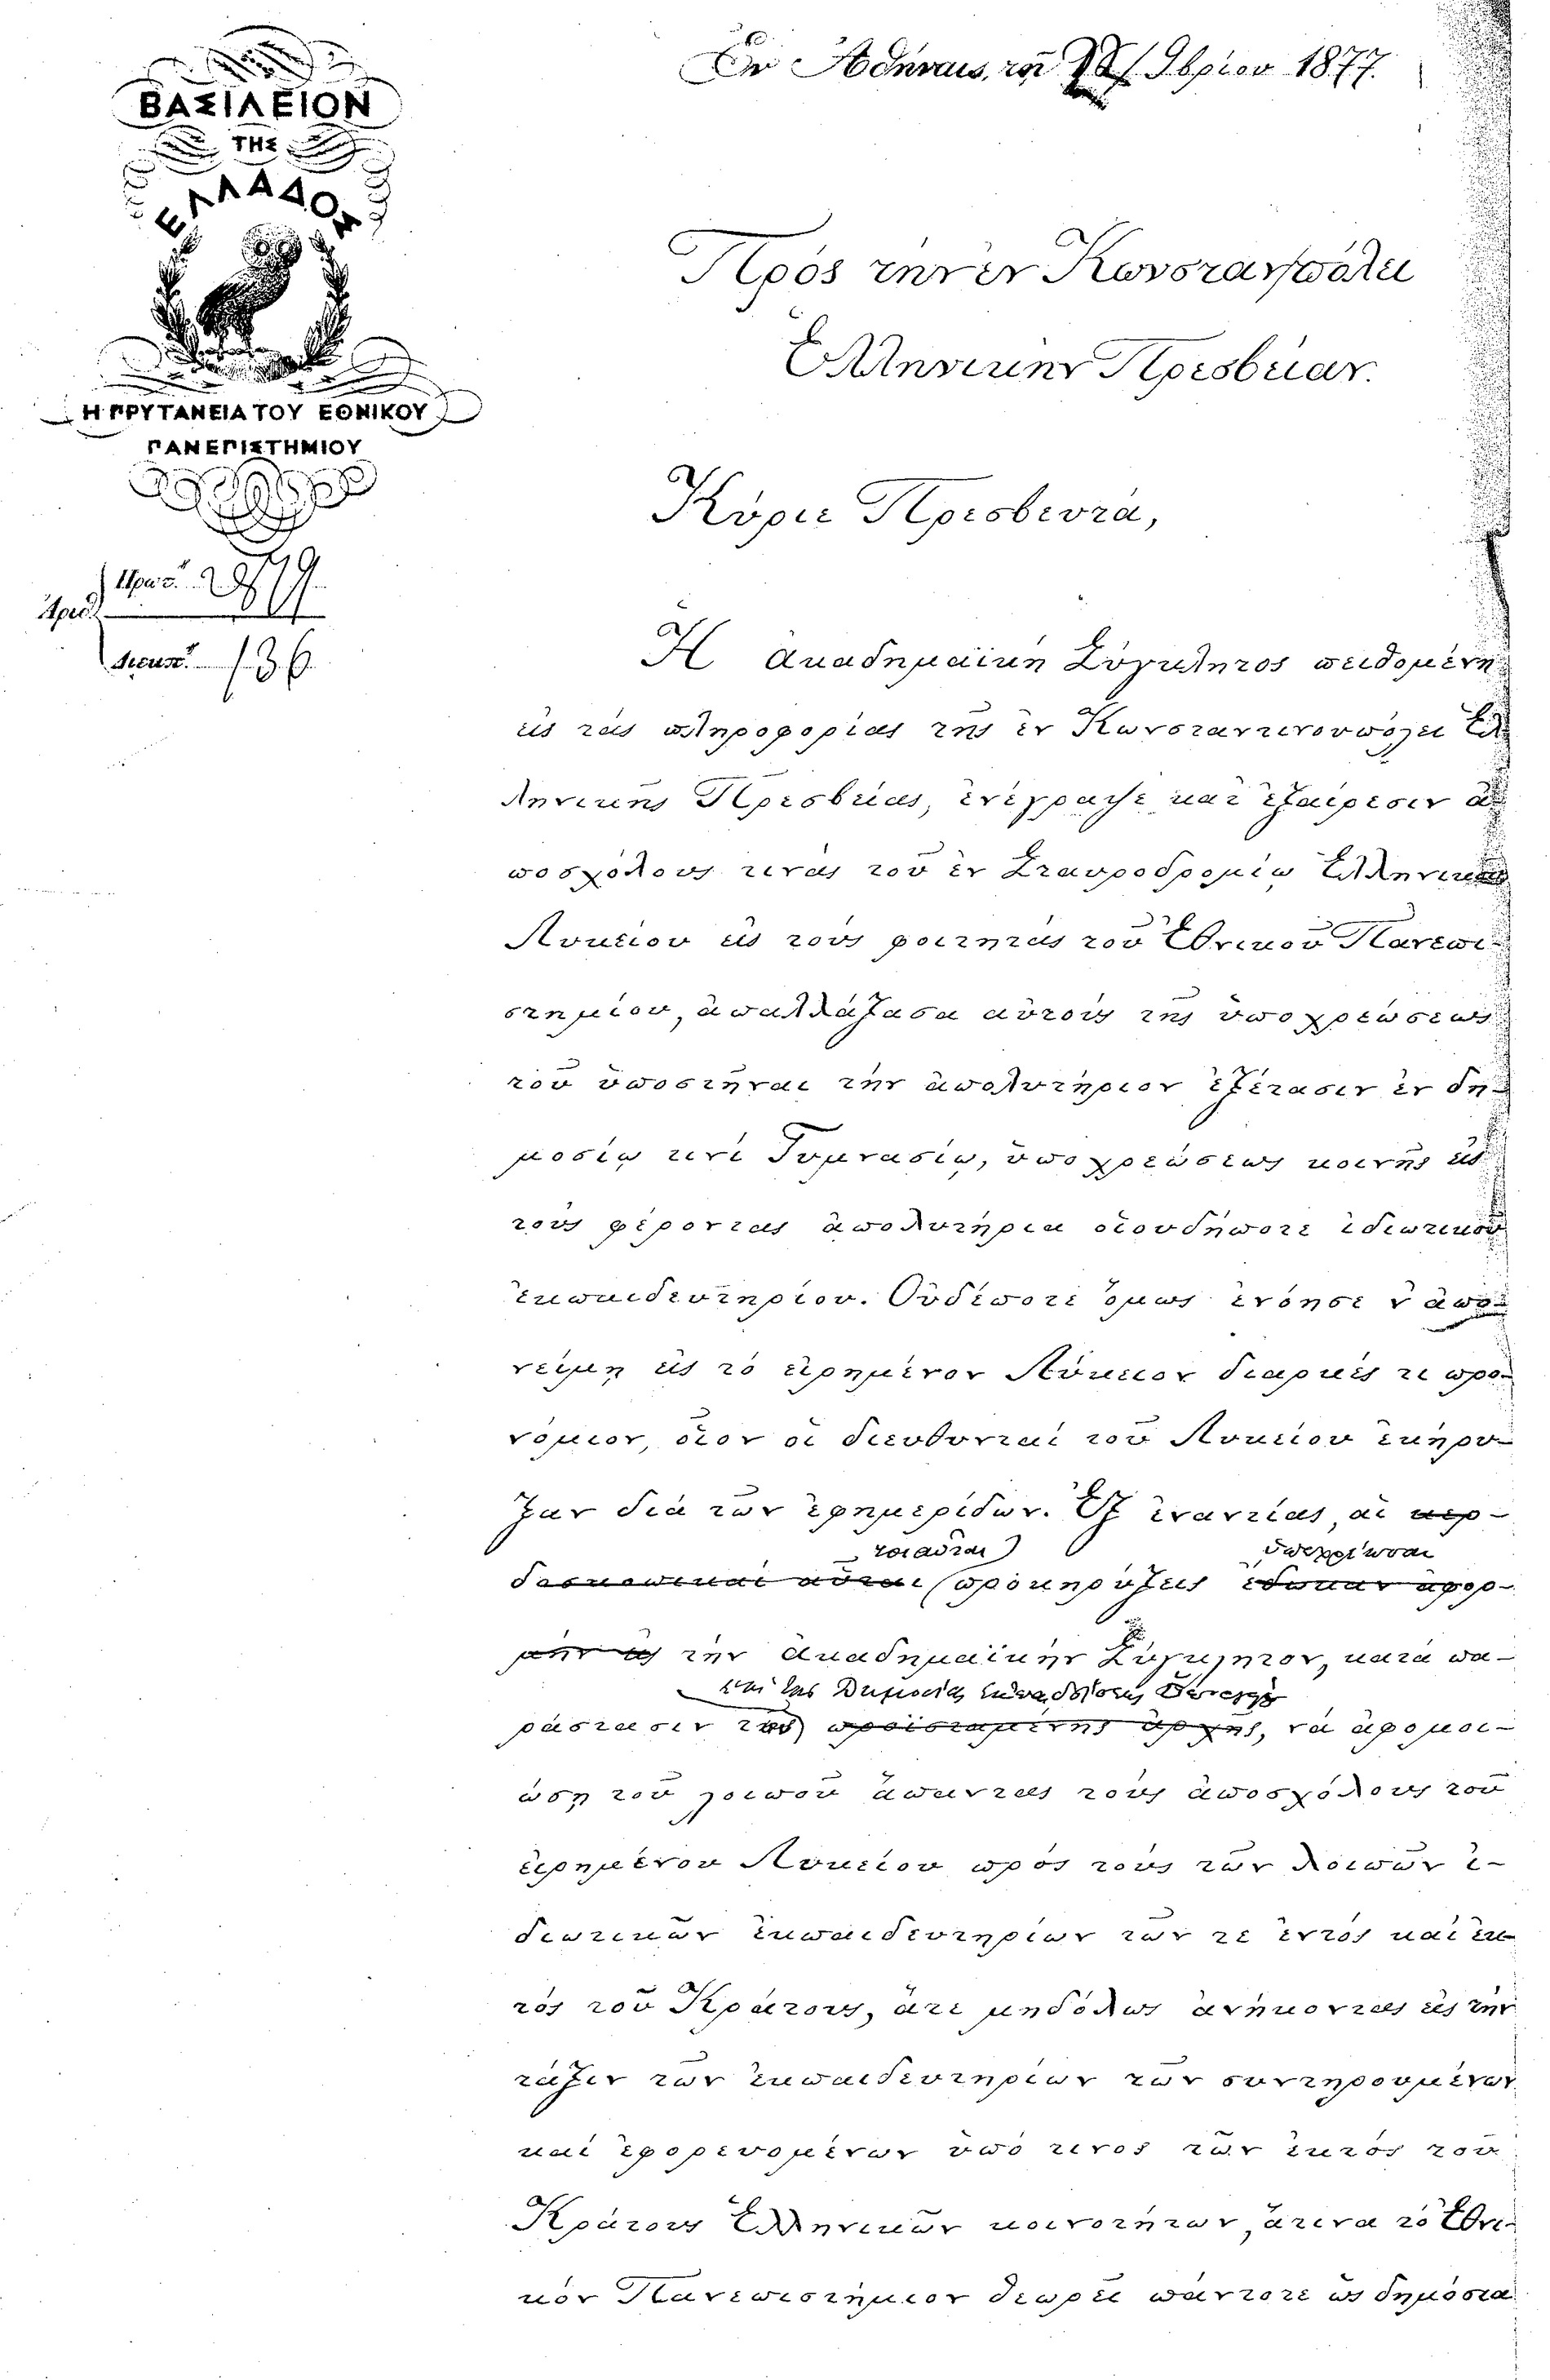 ΒΑΣΙΛΕΙΟΝ
ΤΗΣ
ΕΛΛΑΔΟΣ
Η ΠΡΥΤΑΝΕΙΑ ΤΟΥ ΕΘΝΙΚΟΥ
ΠΑΝΕΠΙΣΤΗΜΙΟΥ
Ἐν Ἀθήναις, τῇ 9βρίου 1877.
Πρὸς τὴν ἐν Κωνσταν/πόλει
Ἑλληνικὴν Πρεσβείαν.
Κύριε Πρεσβευτά,
136
Ἡ Ἀκαδημαϊκὴ Σύγκλητος πειθομένη
εἰς τὰς πληροφορίας τῆς ἐν Κωνσταντινουπόλει Ἑλ
ληνικῆς Πρεσβείας, ἐνέγραψε κατ' ἐξαίρεσιν ἀ
ποσχόλους τινὰς τοῦ ἐν Σταυροδρομίῳ Ἑλληνικοῦ
Λυκείου εἰς τοὺς φοιτητὰς τοῦ Ἐθνικοῦ Πανεπι-
στημίου, ἀπαλλάξασα αὐτοὺς τῆς ὑποχρεώσεως
τοῦ ὑποστῆναι τὴν ἀπολυτήριον ἐξέτασιν ἐν δη-
μοσίῳ τινὶ Γυμνασίῳ, ὑποχρεώσεως κοινῆς εἰς
τοὺς φέροντας ἀπολυτήρια οἱουδήποτε ἰδιωτικοῦ
ἐκπαιδευτηρίου. Οὐδέποτε ὅμως ἐνόησε ν' ἀπο-
νείμῃ εἰς τὸ εἰρημένον Λύκειον διαρκές τι προ-
νόμιον, οἷον οἱ διευθυνταὶ τοῦ Λυκείου ἐκήρυ-
ξαν διὰ τῶν ἐφημερίδων. Ἐξ ἐναντίας, αἱ κερ-
τοιαῦται ὑπεχρέωσαν
δοσκοπικαὶ αὗται προκηρύξεις ἔδωκαν ἀφορ-
μὴν εἰς τὴν Ἀκαδημαϊκὴν Σύγκλητον, κατὰ πα-
ράστασιν τῆς προϊσταμένης ἀρχῆς, νὰ ἀφομοι-
ώσῃ τοῦ λοιποῦ ἅπαντας τοὺς ἀποσχόλους τοῦ
εἰρημένου Λυκείου πρὸς τοὺς τῶν λοιπῶν ἰ-
διωτικῶν ἐκπαιδευτηρίων τῶν τε ἐντὸς καὶ ἐκ
τὸς τοῦ Κράτους, ἅτε μηδόλως ἀνήκοντας εἰς τὴν
τάξιν τῶν ἐκπαιδευτηρίων τῶν συντηρουμένων
καὶ ἐφορευομένων ὑπό τινος τῶν ἐκτὸς τοῦ
Κράτους Ἑλληνικῶν κοινοτήτων, ἅτινα τὸ Ἐθνι-
κὸν Πανεπιστήμιον θεωρεῖ πάντοτε ὡς δημόσια